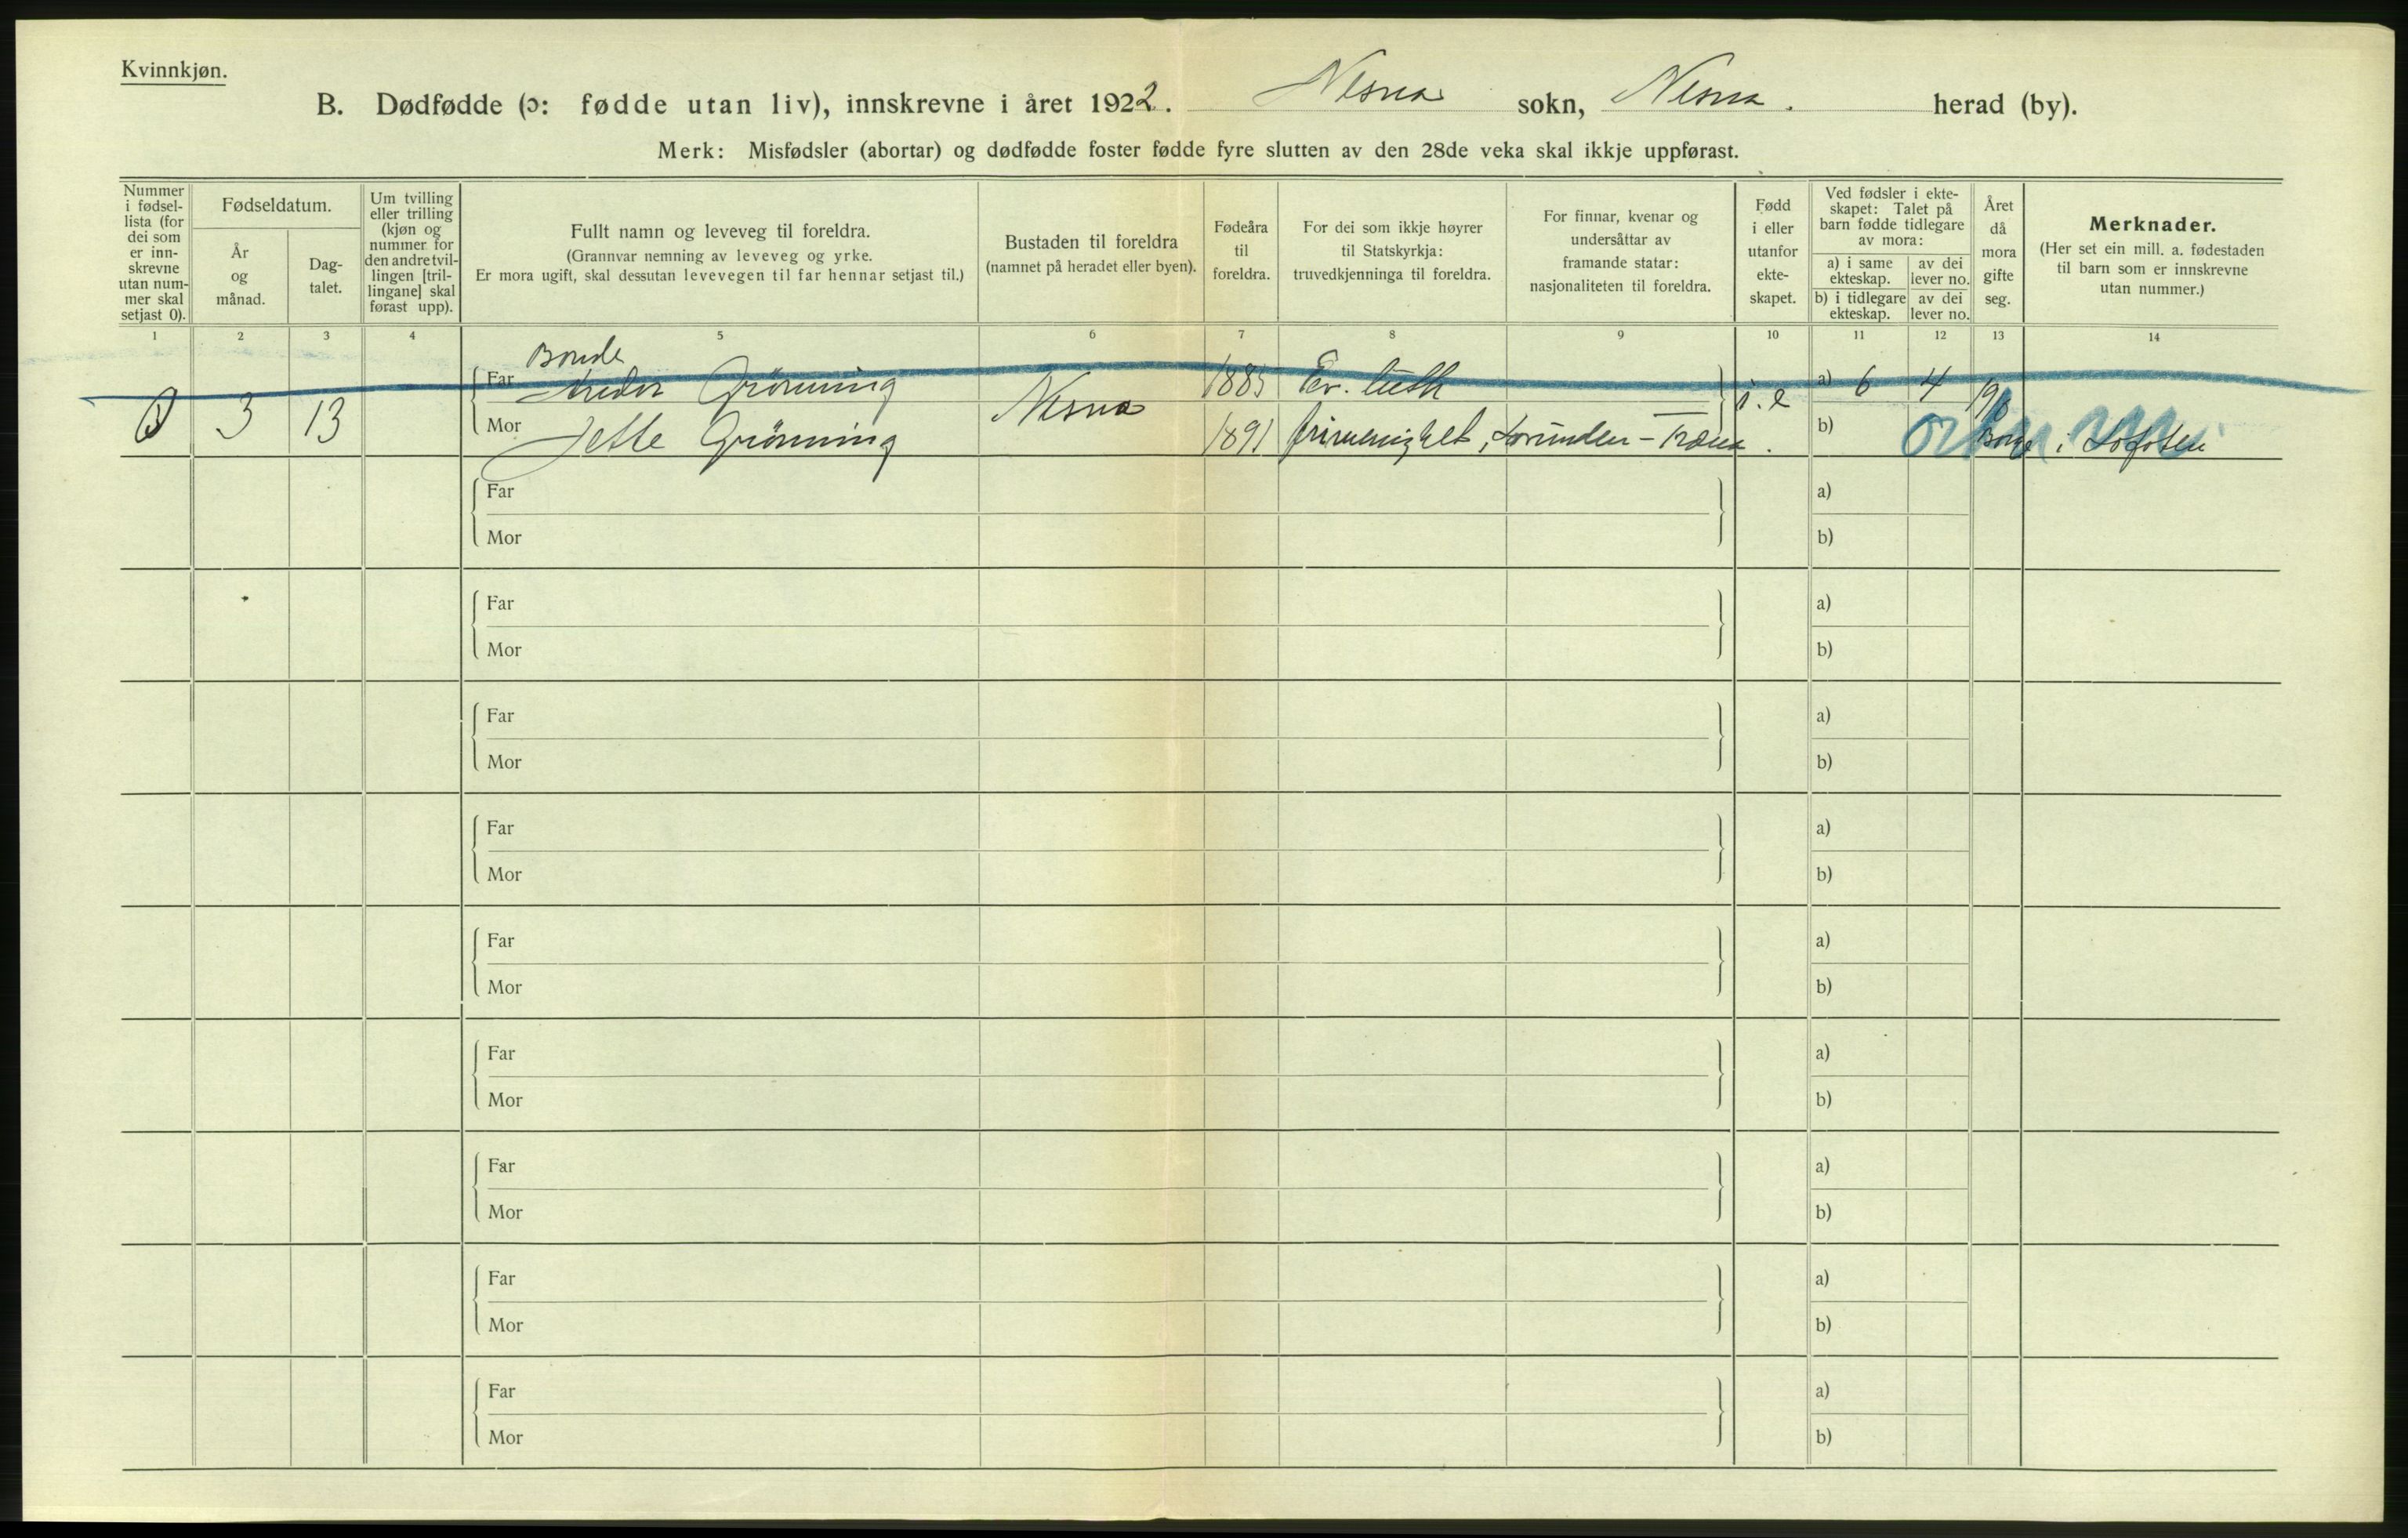 Kvinnkjøn.
B. Dødfødde (ɔ: fødde utan liv), innskrevne i året 1922. Nesna sokn, Nesna. herad (by).
Merk: Misfødsler (abortar) og dødfødde foster fødde fyre slutten av den 28de veka skal ikkje uppførast.
Nummer i fødsel-lista (for dei som er inn-skrevne utan num-mer skal setjast 0).
Fødseldatum.
År og månad.
Dag-talet.
Um tvilling eller trilling (kjøn og nummer for den andre tvil-lingen [tril-lingane] skal førast upp).
Fullt namn og leveveg til foreldra.
(Grannvar nemning av leveveg og yrke.
Er mora ugift, skal dessutan levevegen til far hennar setjast til.)
Bustaden til foreldra
(namnet på heradet eller byen).
Fødeåra til foreldra.
For dei som ikkje høyrer til Statskyrkja: truvedkjenninga til foreldra.
For finnar, kvenar og undersåttar av framande statar: nasjonaliteten til foreldra.
Fødd i eller utanfor ekte-skapet.
Ved fødsler i ekte-skapet: Talet på barn fødde tidlegare av mora:
a) i same ekteskap.
av dei lever no.
b) i tidlegare ekteskap.
av dei lever no.
Året då mora gifte seg.
Merknader.
(Her set ein mill. a. fødestaden til barn som er innskrevne utan nummer.)
1 2 3 4 5 6 7 8 9 10 11 12 13 14
Bonde
Far Grønning 1885 Ev. luth a) 6 4
0 3 13 Nesna i. e
Mor Jette Grønning 1891 frimenighet, Lovunden - Træna. b) i Lofoten
Far a)
Mor b)
Far a)
Mor b)
Far a)
Mor b)
Far a)
Mor b)
Far a)
Mor b)
Far a)
Mor b)
Far a)
Mor b)
Far a)
Mor b)
Far a)
Mor b)